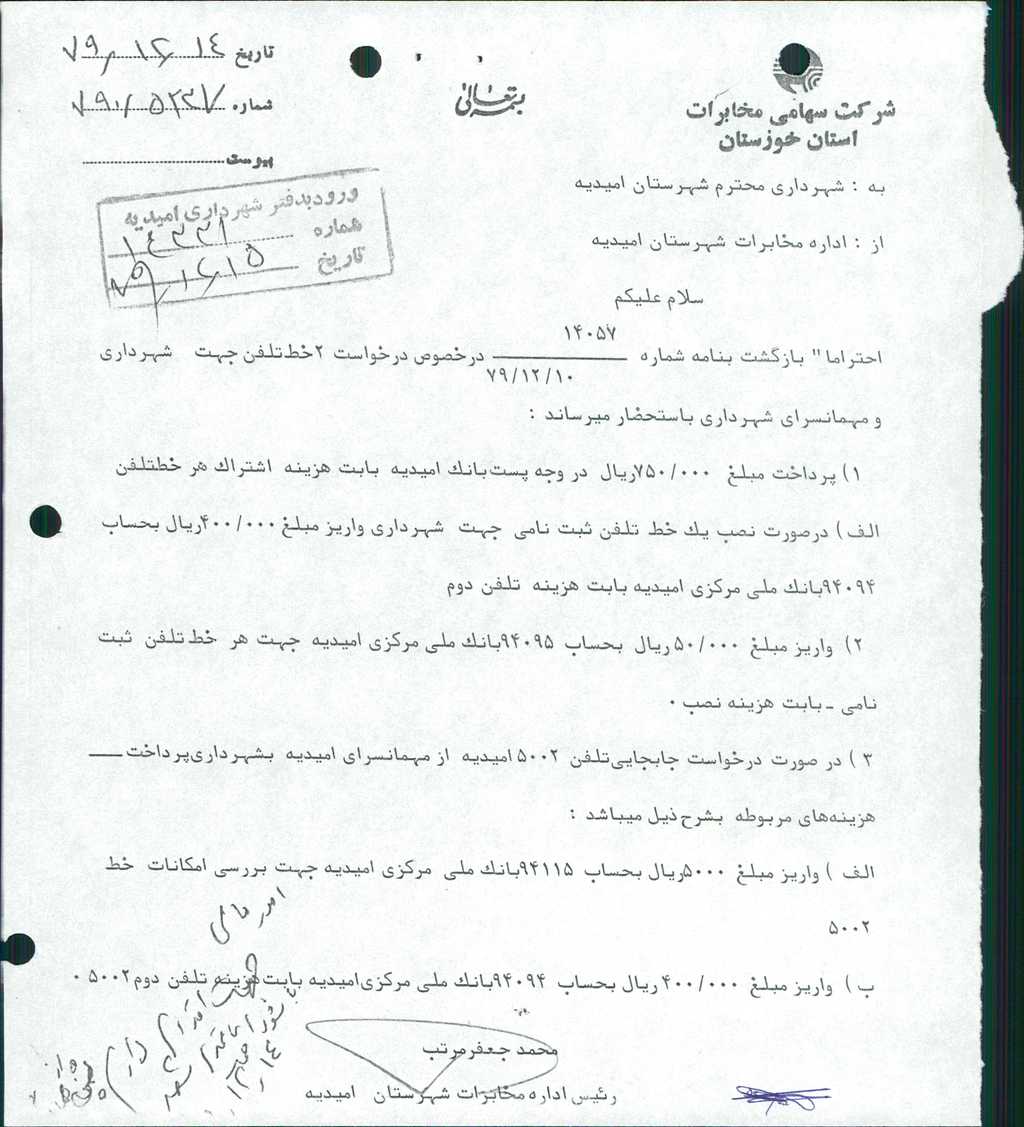 تاریخ ۷۹/۱۲/۱۴
شماره ۷۹۰/۵۲۳۷
پیوست
بسمه تعالی
شرکت سهامی مخابرات
استان خوزستان
ورود بدفتر شهرداری امیدیه
شماره ۱۴۳۳۱
تاریخ ۷۹/۱۲/۱۵
به : شهرداری محترم شهرستان امیدیه
از : اداره مخابرات شهرستان امیدیه
سلام علیکم
۱۴۰۵۷
احتراما" بازگشت بنامه شماره ــــــــ درخصوص درخواست ۲خط تلفن جهت شهرداری
۷۹/۱۲/۱۰
و مهمانسرای شهرداری باستحضار میرساند :
۱) پرداخت مبلغ ۷۵۰/۰۰۰ریال در وجه پست بانک امیدیه بابت هزینه اشتراک هر خط تلفن
الف) درصورت نصب یک خط تلفن ثبت نامی جهت شهرداری واریز مبلغ ۴۰۰/۰۰۰ریال بحساب
۹۴۰۹۴بانک ملی مرکزی امیدیه بابت هزینه تلفن دوم
۲) واریز مبلغ ۵۰/۰۰۰ریال بحساب ۹۴۰۹۵بانک ملی مرکزی امیدیه جهت هر خط تلفن ثبت
نامی ـ بابت هزینه نصب ۰
۳ ) در صورت درخواست جابجایی تلفن ۵۰۰۲ امیدیه از مهمانسرای امیدیه بشهرداری پرداخت ــ
هزینه‌های مربوطه بشرح ذیل میباشد :
الف ) واریز مبلغ ۵۰۰۰ریال بحساب ۹۴۱۱۵بانک ملی مرکزی امیدیه جهت بررسی امکانات خط
۵۰۰۲
ب ) واریز مبلغ ۴۰۰/۰۰۰ ریال بحساب ۹۴۰۹۴ بانک ملی مرکزی امیدیه بابت هزینه تلفن دوم ۵۰۰۲ ۰
محمد جعفر مرتب
رئیس اداره مخابرات شهرستان امیدیه